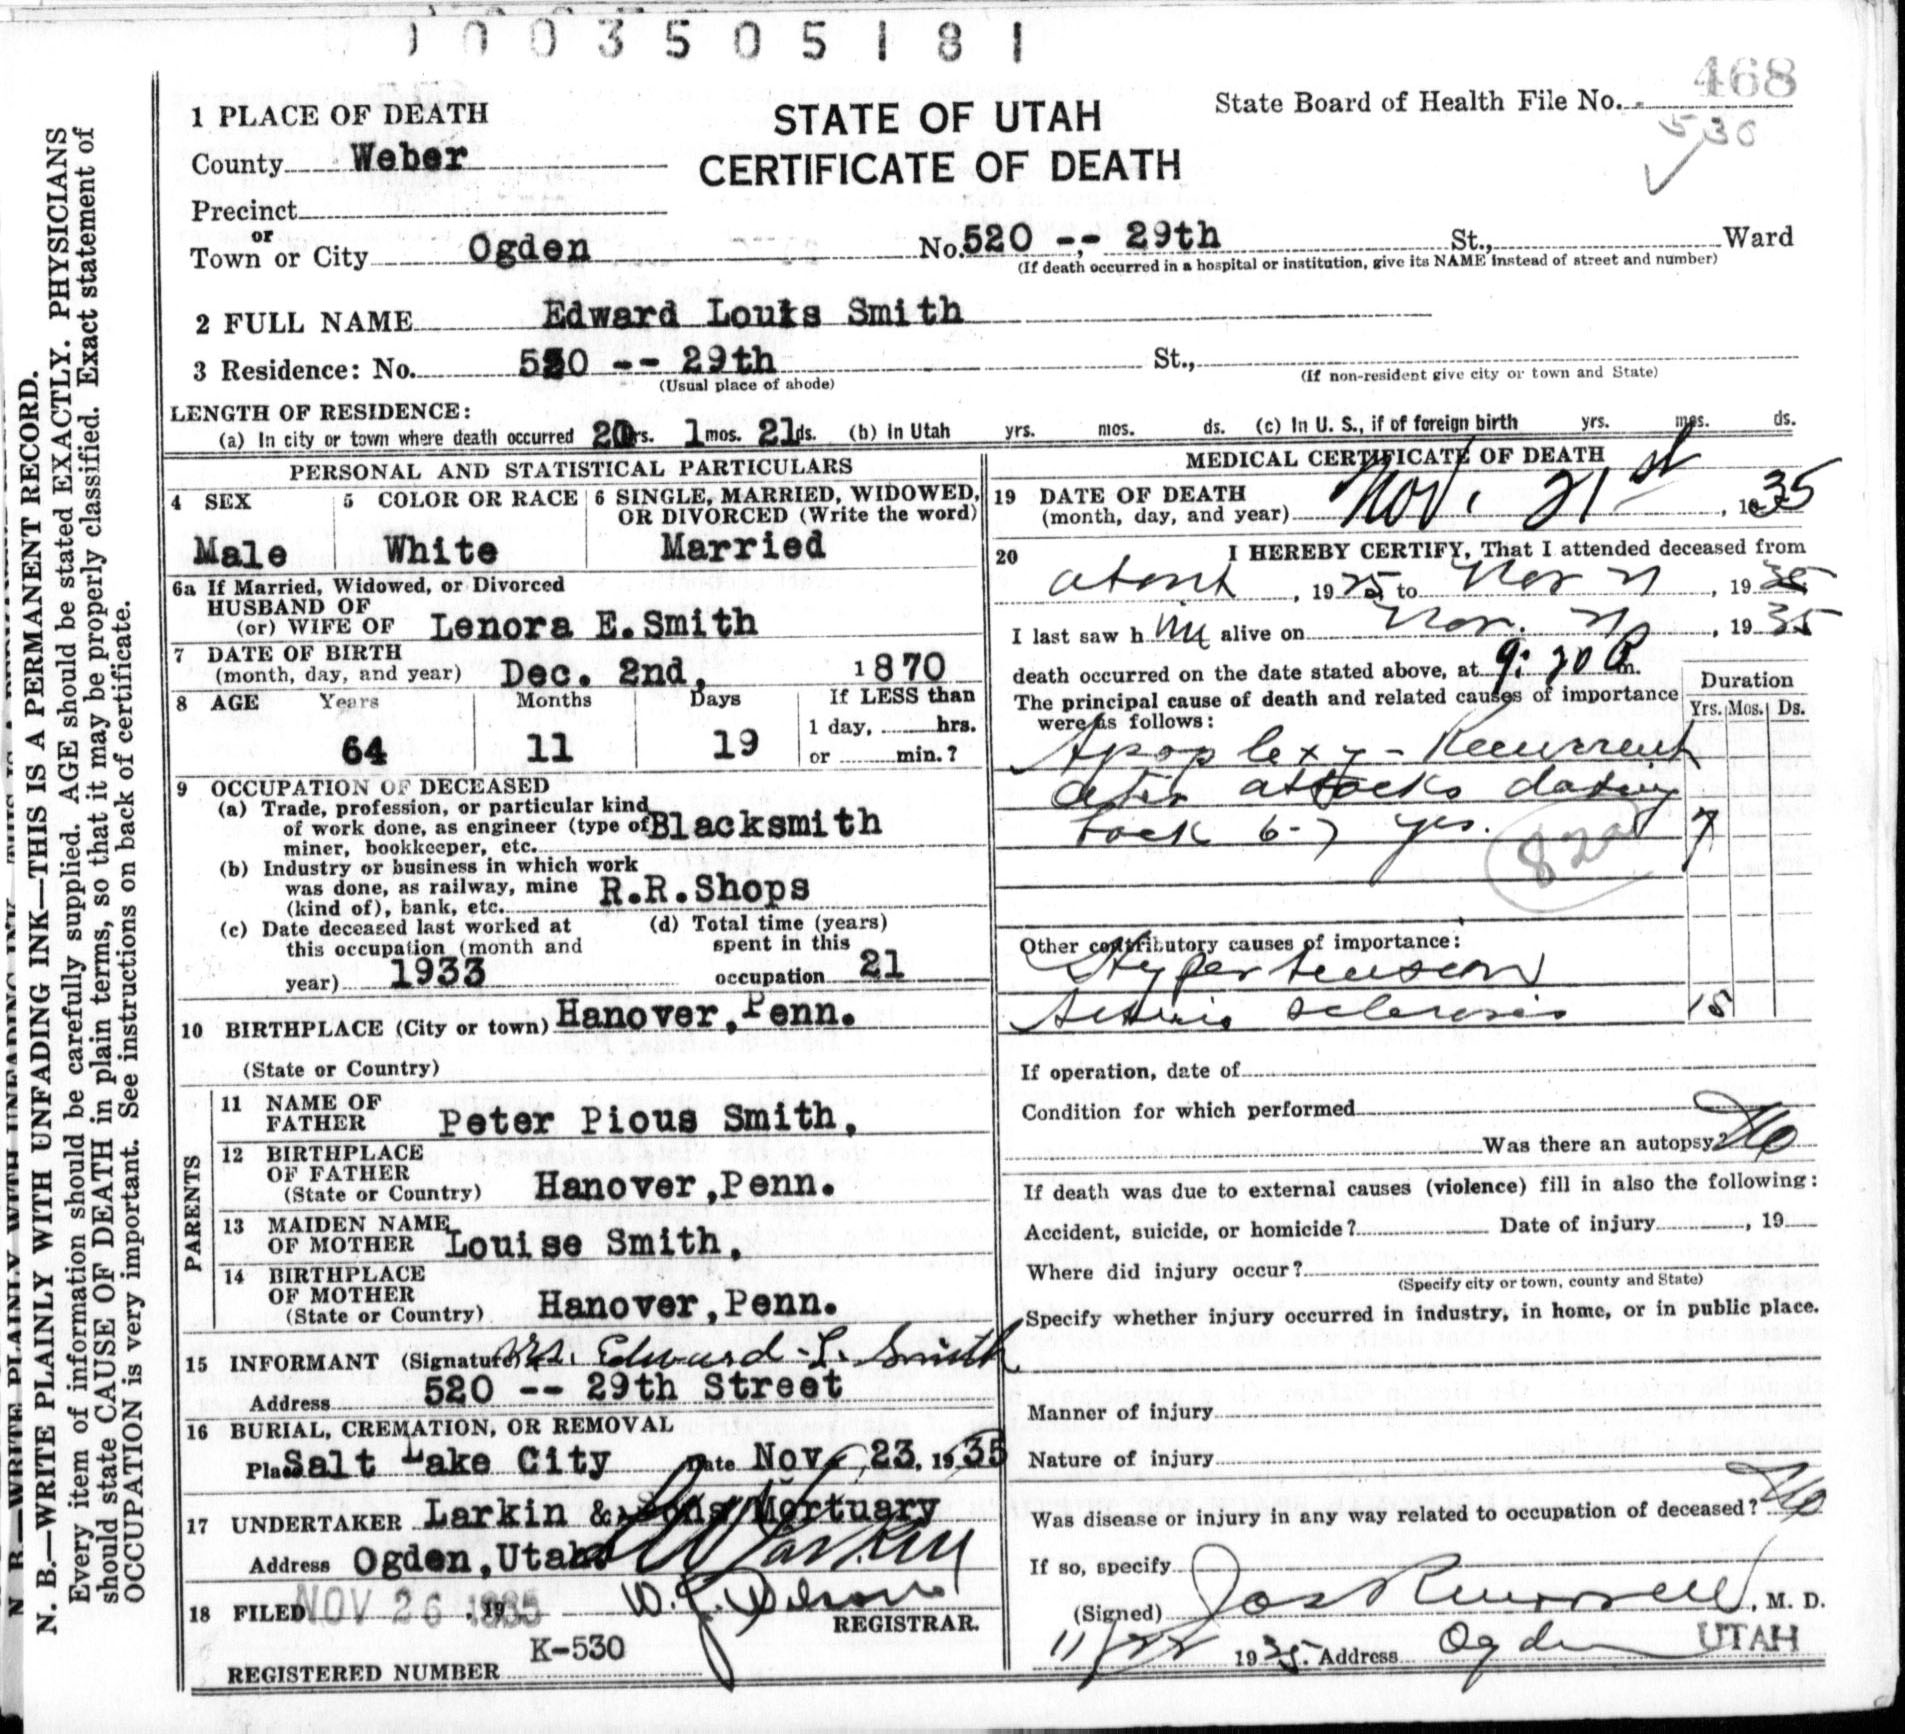 1003505181
468
State Board of Health File No.
530
1 PLACE OF DEATH
STATE OF UTAH
CERTIFICATE OF DEATH
County Weber
Precinct
or
Town or City Ogden No. 520 -- 29th St., Ward
(If death occurred in a hospital or institution, give its NAME instead of street and number)
2 FULL NAME Edward Louis Smith
3 Residence: No. 520 -- 29th St.,
(Usual place of abode) (If non-resident give city or town and State)
LENGTH OF RESIDENCE:
(a) In city or town where death occurred 20 yrs. 1 mos. 21 ds. (b) in Utah yrs. mos. ds. (c) In U. S., if of foreign birth yrs. mos. ds.
PERSONAL AND STATISTICAL PARTICULARS
4 SEX 5 COLOR OR RACE 6 SINGLE, MARRIED, WIDOWED,
OR DIVORCED (Write the word)
Male White Married
6a If Married, Widowed, or Divorced
HUSBAND OF
(or) WIFE OF Lenora E.Smith
7 DATE OF BIRTH
(month, day, and year) Dec. 2nd, 1870
8 AGE Years Months Days If LESS than
1 day, hrs.
64 11 19
or min.?
9 OCCUPATION OF DECEASED
(a) Trade, profession, or particular kind
of work done, as engineer (type of Blacksmith
miner, bookkeeper, etc.
(b) Industry or business in which work
was done, as railway, mine R.R.Shops
(kind of), bank, etc.
(c) Date deceased last worked at (d) Total time (years)
this occupation (month and spent in this
year) 1933 occupation 21
10 BIRTHPLACE (City or town) Hanover,Penn.
(State or Country)
PARENTS
11 NAME OF
FATHER Peter Pious Smith,
12 BIRTHPLACE
OF FATHER
(State or Country) Hanover,Penn.
13 MAIDEN NAME
OF MOTHER Louise Smith,
14 BIRTHPLACE
OF MOTHER
(State or Country) Hanover,Penn.
15 INFORMANT (Signature) Mrs. Edward L. Smith
Address 520 -- 29th Street
16 BURIAL, CREMATION, OR REMOVAL
Place Salt Lake City Date Nov. 23, 1935
17 UNDERTAKER Larkin & Sons Mortuary
Address Ogden,Utah.
18 FILED NOV 26 1935
REGISTRAR.
K-530
REGISTERED NUMBER
MEDICAL CERTIFICATE OF DEATH
19 DATE OF DEATH
(month, day, and year) Nov. 21st, 1935
20 I HEREBY CERTIFY, That I attended deceased from
about, 1925, to Nov 21, 1935
I last saw him alive on Nov. 21, 1935
death occurred on the date stated above, at 9:20 P m.
The principal cause of death and related causes of importance
were as follows:
Duration
Yrs. Mos. Ds.
Apoplexy - Recurrent
after attacks dating
back 6-7 yrs. 7
82a
Other contributory causes of importance:
Hypertension
Arterio sclerosis 15
If operation, date of
Condition for which performed
Was there an autopsy? No
If death was due to external causes (violence) fill in also the following:
Accident, suicide, or homicide? Date of injury , 19
Where did injury occur?
(Specify city or town, county and State)
Specify whether injury occurred in industry, in home, or in public place.
Manner of injury
Nature of injury
Was disease or injury in any way related to occupation of deceased? No
If so, specify
(Signed) , M. D.
11/22 1935. Address Ogden UTAH
N. B.—WRITE PLAINLY WITH UNFADING INK—THIS IS A PERMANENT RECORD.
Every item of information should be carefully supplied. AGE should be stated EXACTLY. PHYSICIANS
should state CAUSE OF DEATH in plain terms, so that it may be properly classified. Exact statement of
OCCUPATION is very important. See instructions on back of certificate.